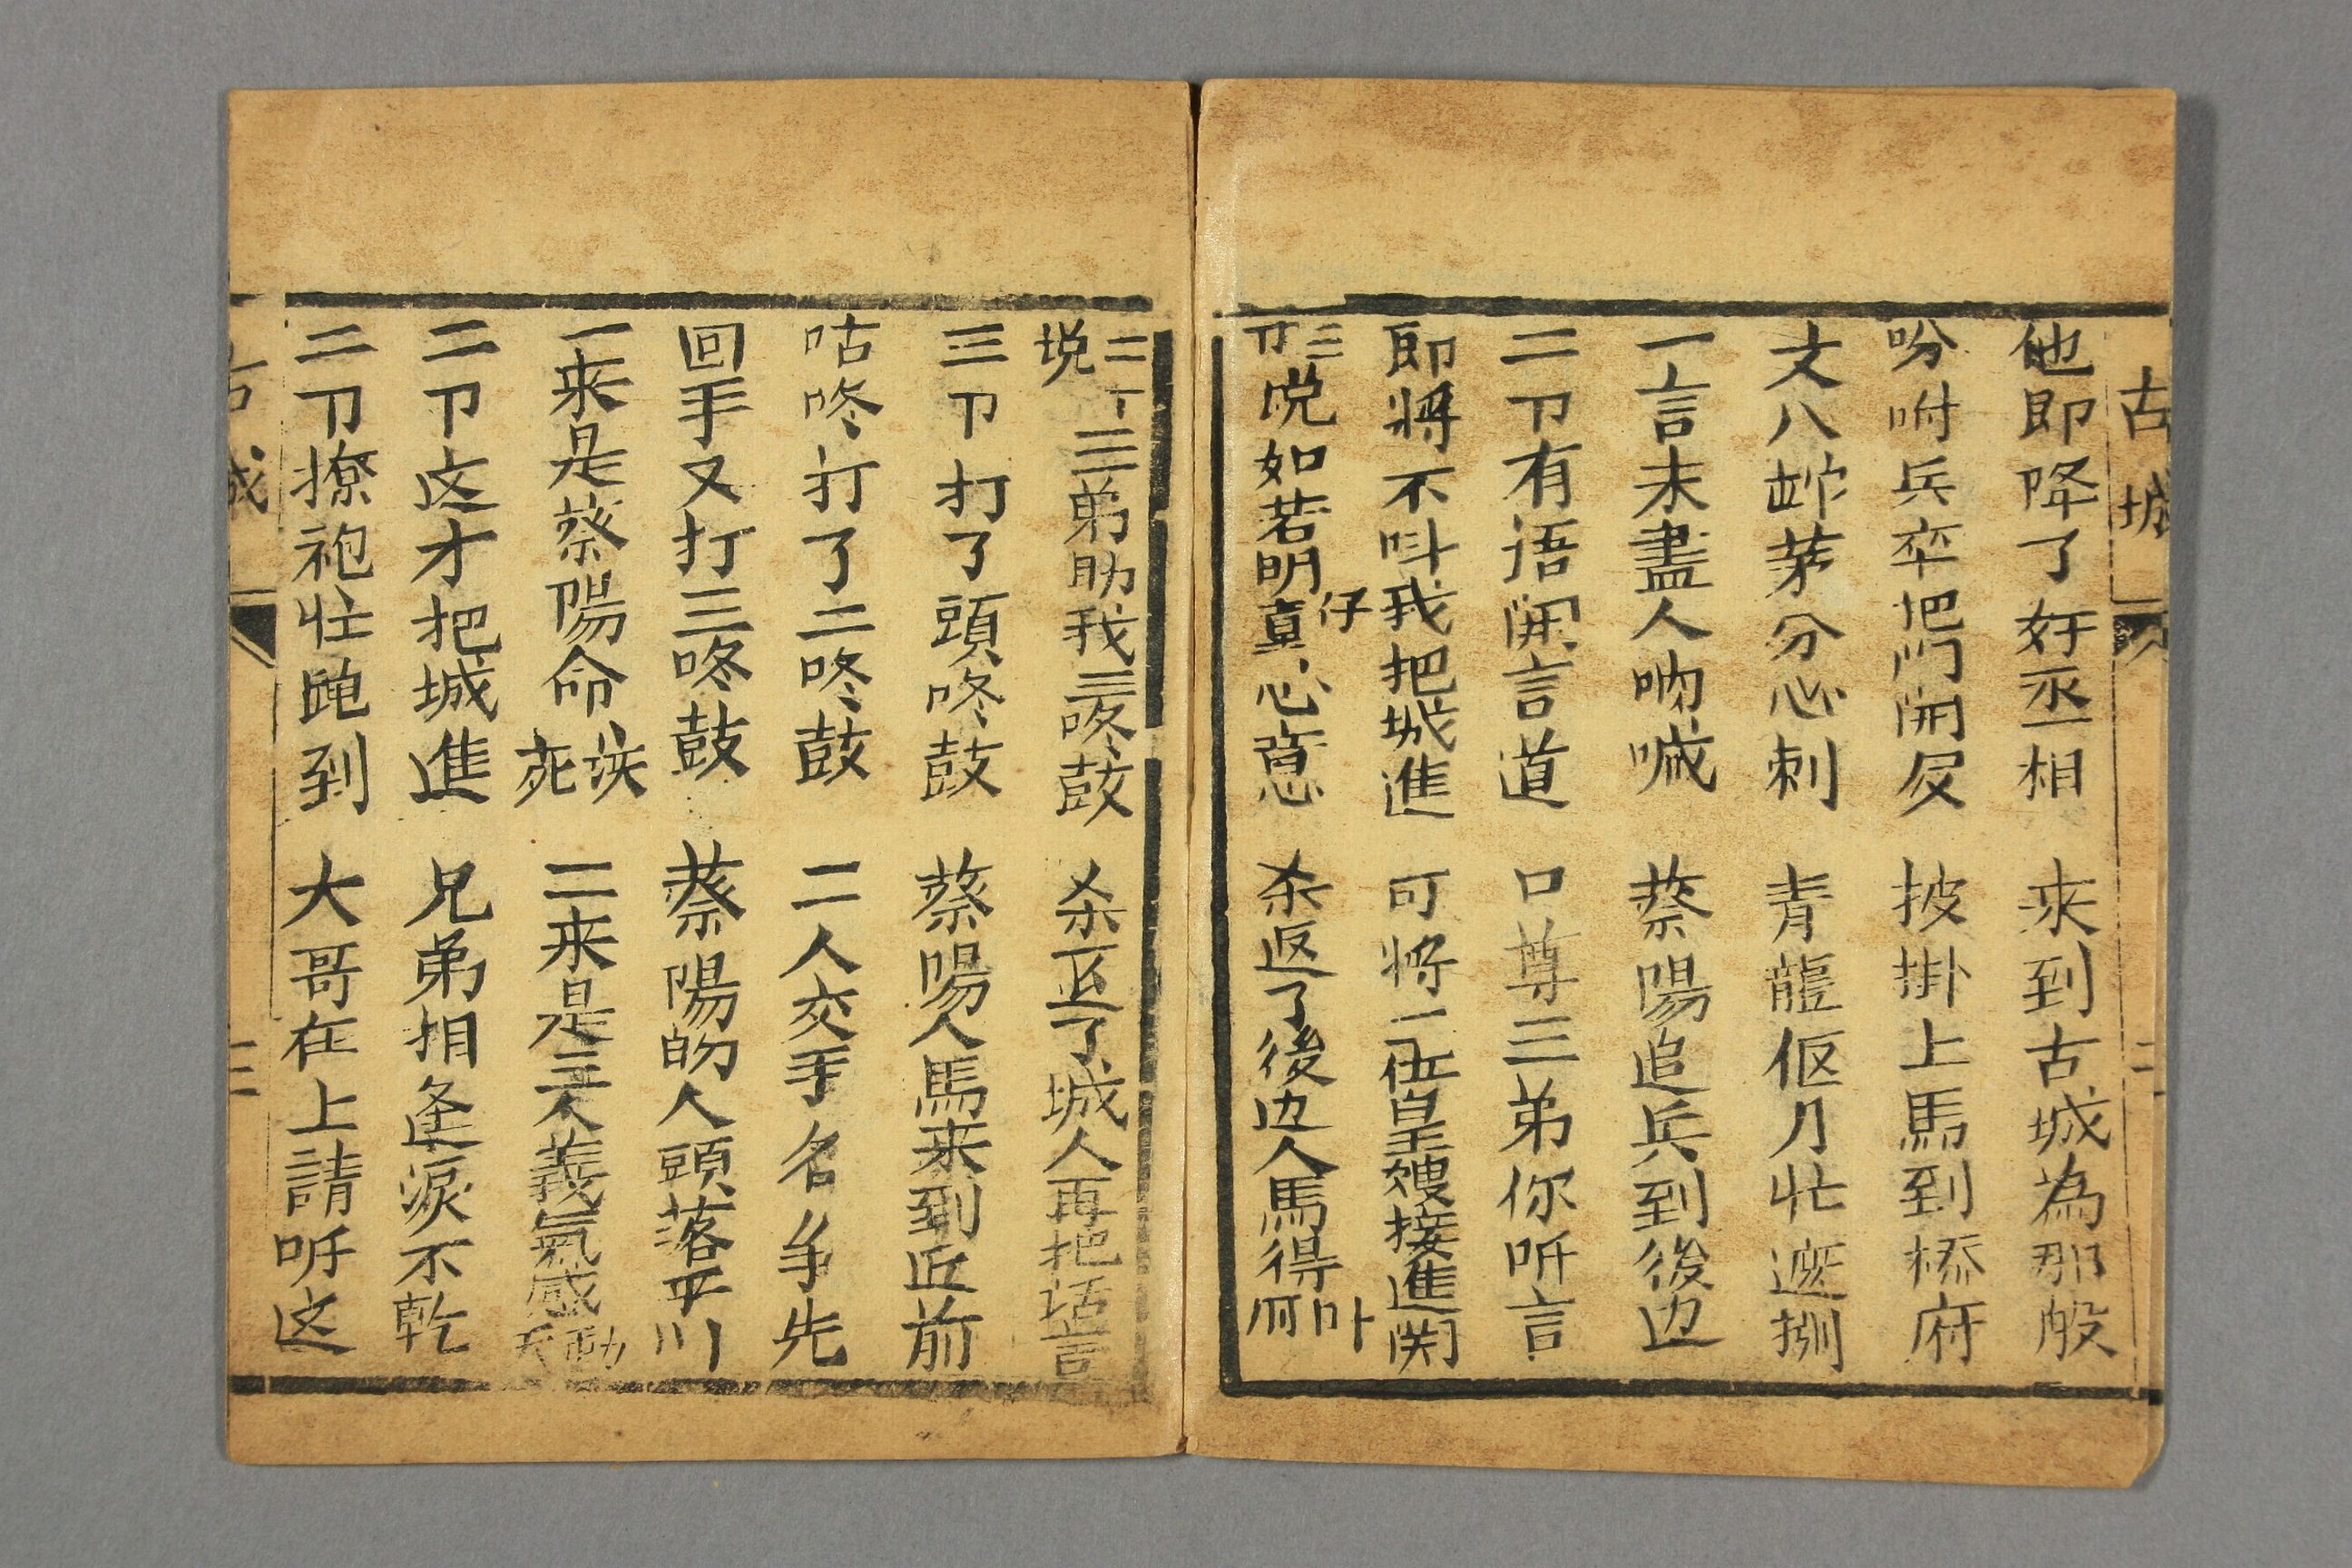 古城
二
他即降了奸丞相　来到古城為那般
吩咐兵卒把门開　披掛上馬到
丈八蛇茅分心刺　青龍偃月忙遮
一言未盡人吶喊　蔡陽追兵到後边
二卩有语開言道　口尊三弟你听言
即將不叫我把城進　可將二位皇嫂接進関
三卩说如若明真仔心意　杀返了後边人馬得
二卩说三弟助我三咚鼓　杀返了城人再把话言
三卩打了頭咚鼓　蔡陽人馬来到近前
咕咚打了二咚鼓　二人交手名争先
回手又打三咚鼓　蔡陽的人頭落平川
一来是蔡陽命该死　二来是三人義氣感動天
二卩这才把城進　兄弟相逢淚不乾
二卩撩袍忙跑到　大哥在上請听这
古城
三